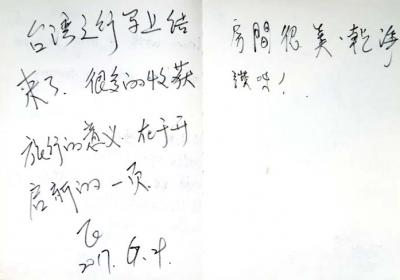 台湾之行马上结
来了.很多的收获
旅行的意义.在于开
启新的一页.
2017.6.29.
房間很美.乾淨
讚喲!